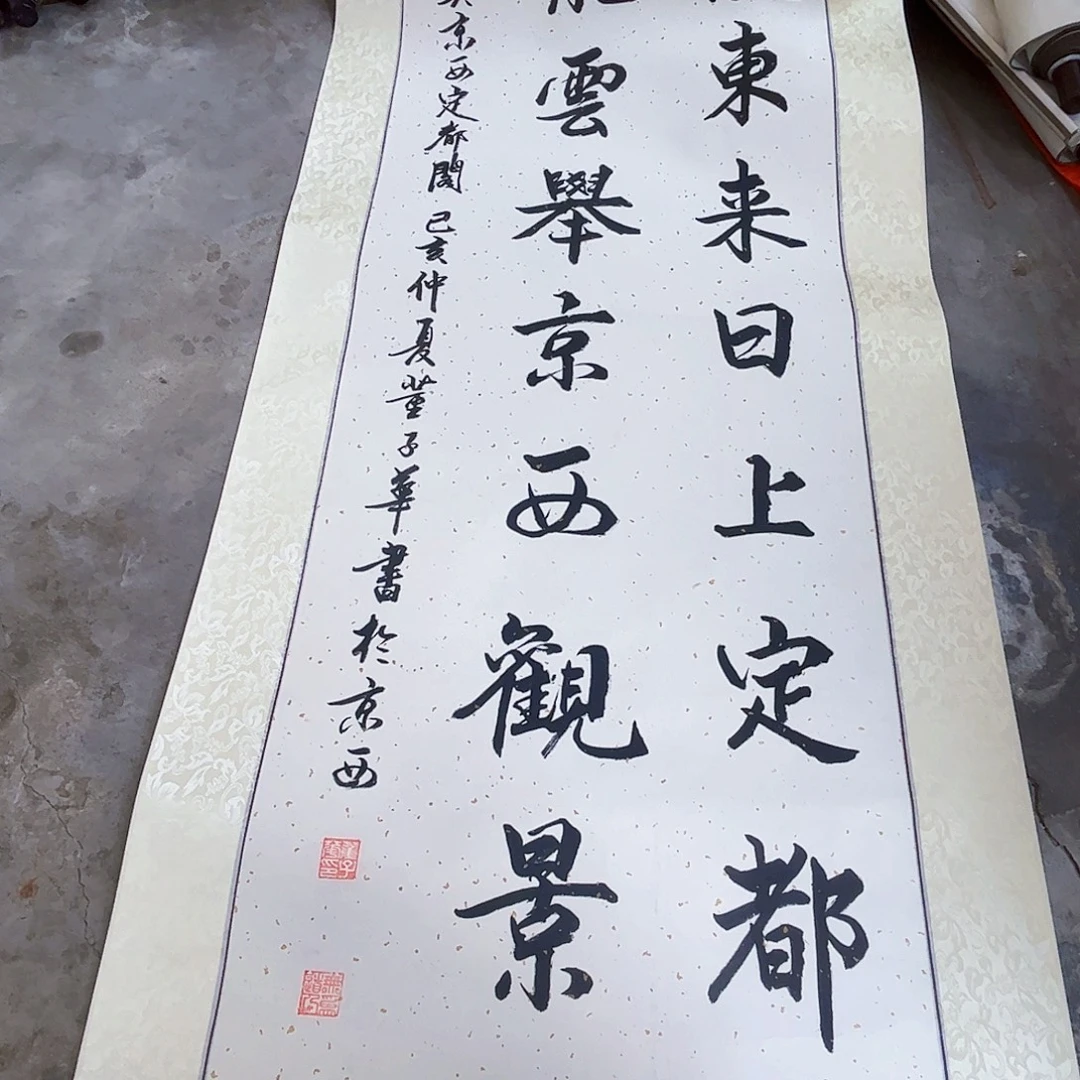 東来日上定都
雲舉京西觀景
京西定都閣 己亥仲夏董子華書於京西